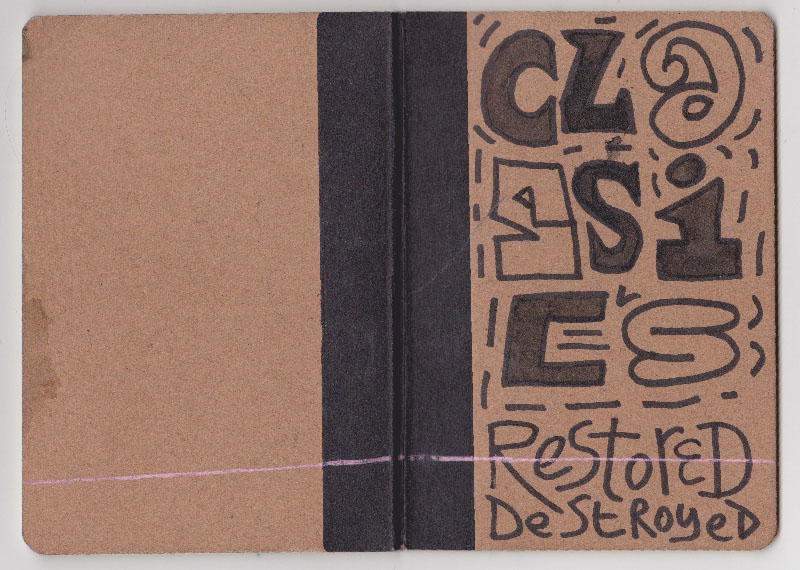 CLa
SSi
C'S
ReStoreD
DeStRoyeD